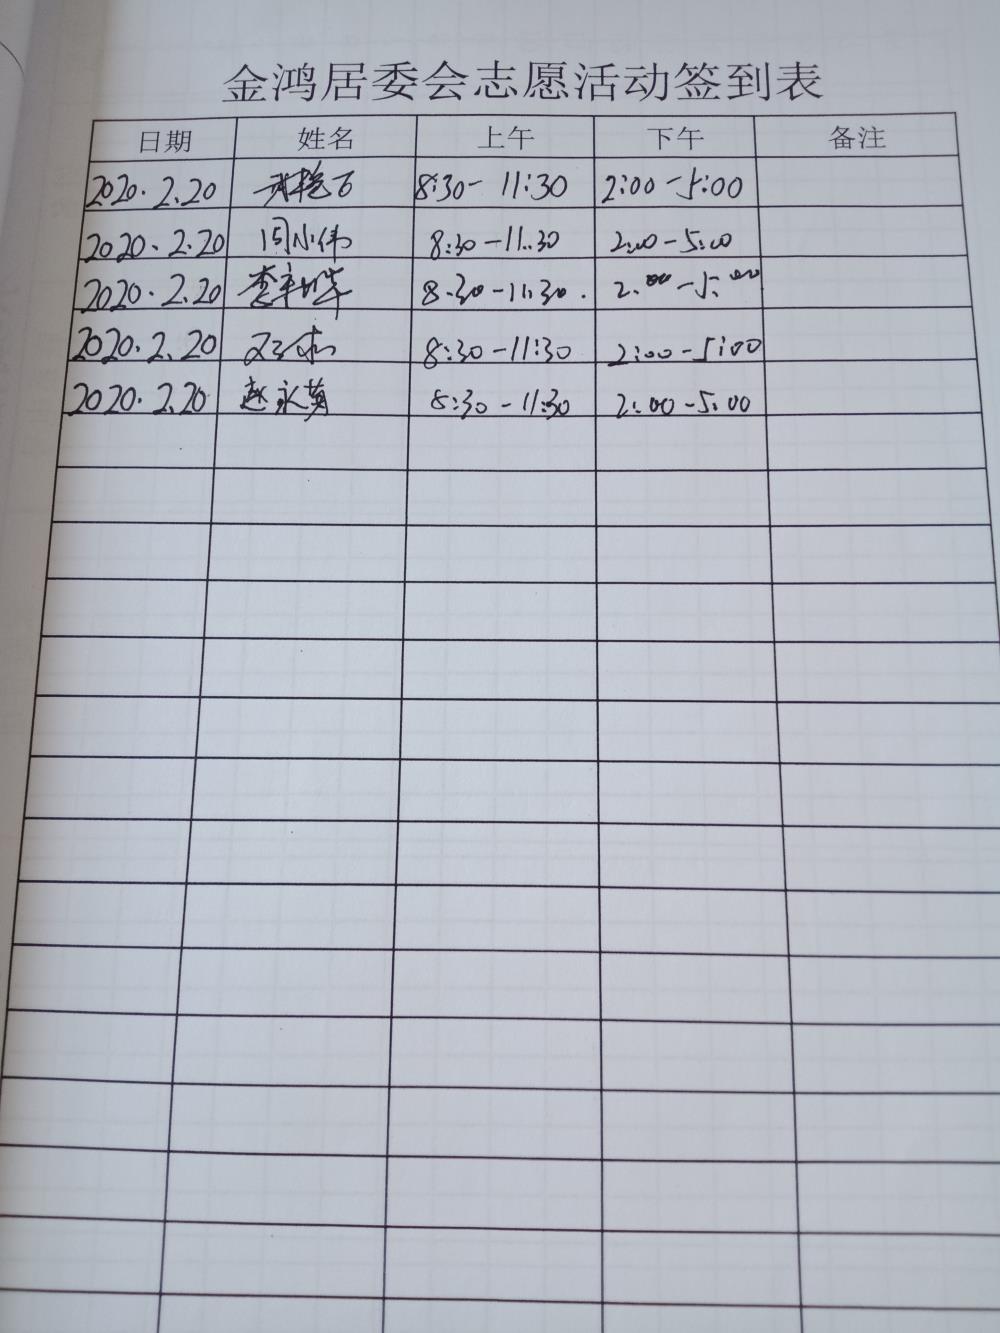 金鸿居委会志愿活动签到表
日期 姓名 上午 下午 备注
2020.2.20 8:30-11:30 2:00-5:00
2020.2.20 周小伟 8:30-11:30 2:00-5:00
2020.2.20 8:30-11:30. 2:00-5:00
2020.2.20 8:30-11:30 2:00-5:00
2020.2.20 赵永黄 8:30-11:30 2:00-5:00